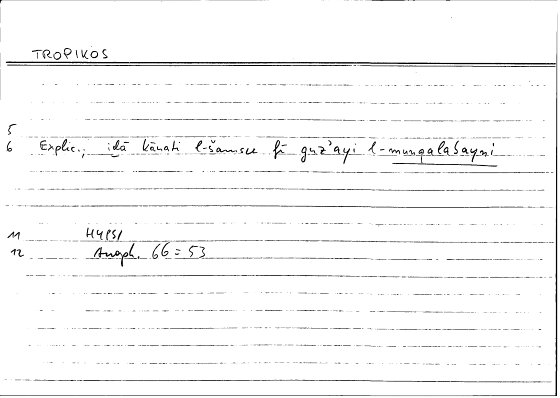 TROPIKOS
5
6 Explic.; iḏā kānati l-šamsu fī ǧuz'ayi l-munqalabayni
11 HYPSI
12 Anaph. 66 = 53